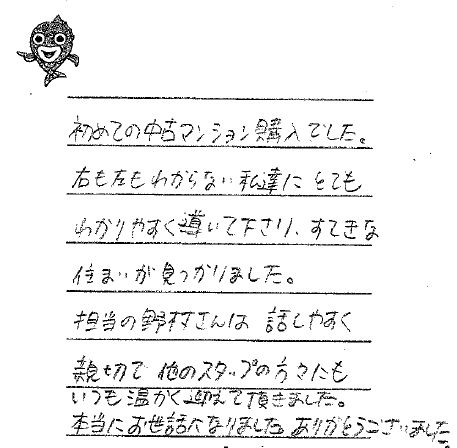 初めての中古マンション購入でした。
右も左もわからない私達にとても
わかりやすく導いて下さり、すてきな
住まいが見つかりました。
担当の野村さんは 話しやすく
親切で 他のスタップの方々にも
いつも温かく迎えて頂きました。
本当にお世話になりました。ありがとうございました